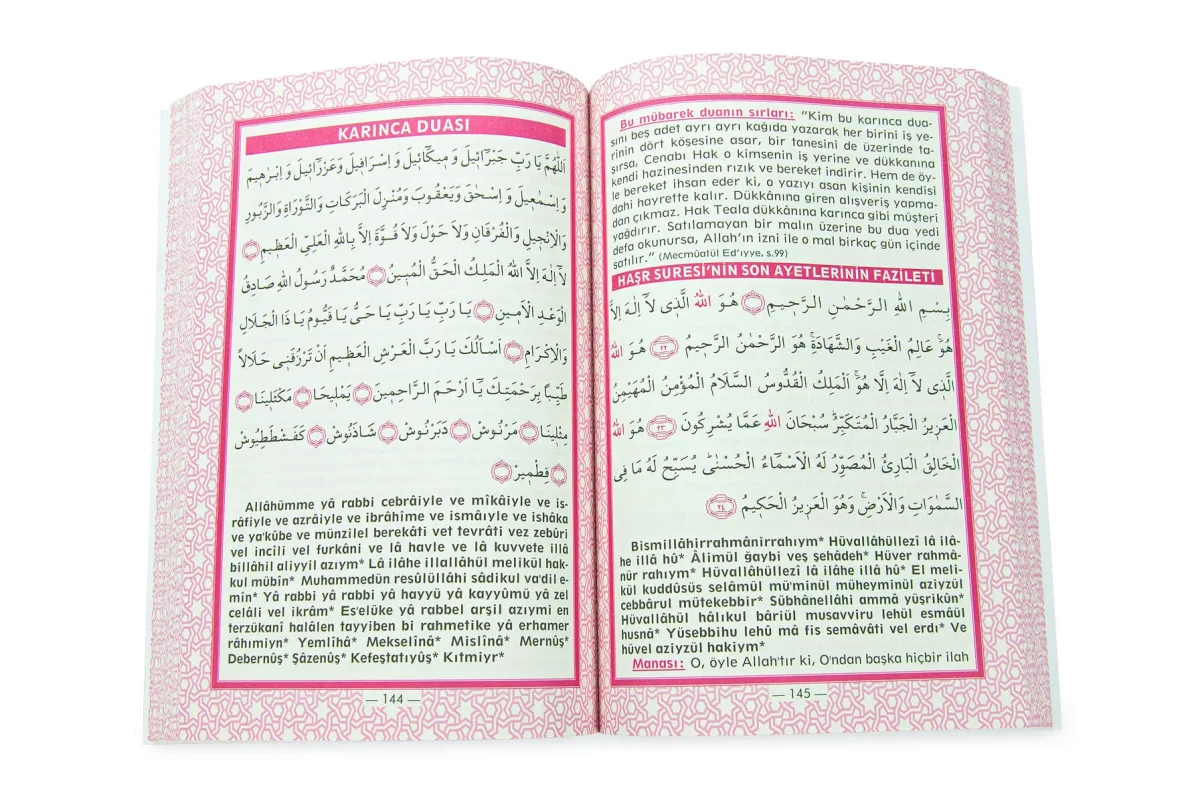 KARINCA DUASI
اَللّٰهُمَّ يَا رَبِّ جَبْرَٓائٖيلَ وَ مٖيكَٓائٖيلَ وَ اِسْرَافٖيلَ وَعَزْرَٓائٖيلَ وَ اِبْرٰهٖيمَ
وَ اِسْمٰعٖيلَ وَ اِسْحٰقَ وَيَعْقُوبَ وَمُنْزِلَ الْبَرَكَاتِ وَالتَّوْرَاةِ وَالزَّبُورِ
وَالْاِنْجٖيلِ وَالْفُرْقَانِ وَلَا حَوْلَ وَلَا قُوَّةَ اِلَّا بِاللهِ الْعَلِيِّ الْعَظٖيمِ
لَٓا اِلٰهَ اِلَّا اللهُ الْمَلِكُ الْحَقُّ الْمُبٖينُ مُحَمَّدٌ رَسُولُ اللهِ صَادِقُ
الْوَعْدِ الْاَمٖينِ يَا رَبِّ يَا رَبِّ يَا حَيُّ يَا قَيُّومُ يَا ذَا الْجَلَالِ
وَالْاِكْرَامِ اَسْاَلُكَ يَا رَبَّ الْعَرْشِ الْعَظٖيمِ اَنْ تَرْزُقَنٖي حَلَالًا
طَيِّبًا بِرَحْمَتِكَ يَٓا اَرْحَمَ الرَّاحِمٖينَ يَمْلٖيحَا مَكْثَلٖينَا
مِثْلٖينَا مَرْنُوشْ دَبَرْنُوشْ شَاذَنُوشْ كَفَشْطَطِيُوشْ
قِطْمٖيرْ
Allâhümme yâ rabbi cebrâiyle ve mîkâiyle ve is-
râfiyle ve azrâiyle ve ibrâhîme ve ismâıyle ve ishâka
ve ya'kûbe ve münzilel berekâti vet tevrâti vez zebûri
vel incîli vel furkâni ve lâ havle ve lâ kuvvete illâ
billâhil aliyyil azıym* Lâ ilâhe illallâhül melikül hak-
kul mübîn* Muhammedün resûlüllâhi sâdikul va'dil e-
mîn* Yâ rabbi yâ rabbi yâ hayyü yâ kayyûmü yâ zel
celâli vel ikrâm* Es'elüke yâ rabbel arşil azıymi en
terzükanî halâlen tayyiben bi rahmetike yâ erhamer
râhımiyn* Yemlîhâ* Mekselînâ* Mislînâ* Mernûş*
Debernûş* Şâzenûş* Kefeştatıyûş* Kıtmiyr*
— 144 —
Bu mübarek duanın sırları: “Kim bu karınca dua-
sını beş adet ayrı ayrı kağıda yazarak her birini iş ye-
rinin dört köşesine asar, bir tanesini de üzerinde ta-
şırsa, Cenabı Hak o kimsenin iş yerine ve dükkanına
kendi hazinesinden rızık ve bereket indirir. Hem de öy-
le bereket ihsan eder ki, o yazıyı asan kişinin kendisi
dahi hayrette kalır. Dükkânına giren alışveriş yapma-
dan çıkmaz. Hak Teala dükkânına karınca gibi müşteri
yağdırır. Satılamayan bir malın üzerine bu dua yedi
defa okunursa, Allah’ın izni ile o mal birkaç gün içinde
satılır.” (Mecmûatül Ed’ıyye, s.99)
HAŞR SURESİ’NİN SON AYETLERİNİN FAZİLETİ
بِسْمِ اللهِ الرَّحْمٰنِ الرَّحٖيمِ هُوَ اللهُ الَّذٖي لَٓا اِلٰهَ اِلَّا
هُوَۚ عَالِمُ الْغَيْبِ وَالشَّهَادَةِۚ هُوَ الرَّحْمٰنُ الرَّحٖيمُ ٢٢ هُوَ اللهُ
الَّذٖي لَٓا اِلٰهَ اِلَّا هُوَۚ اَلْمَلِكُ الْقُدُّوسُ السَّلَامُ الْمُؤْمِنُ الْمُهَيْمِنُ
الْعَزٖيزُ الْجَبَّارُ الْمُتَكَبِّرُؕ سُبْحَانَ اللهِ عَمَّا يُشْرِكُونَ ٢٣ هُوَ اللهُ
الْخَالِقُ الْبَارِئُ الْمُصَوِّرُ لَهُ الْاَسْمَٓاءُ الْحُسْنٰىؕ يُسَبِّحُ لَهُ مَا فِي
السَّمٰوَاتِ وَالْاَرْضِۚ وَهُوَ الْعَزٖيزُ الْحَكٖيمُ ٢٤
Bismillâhirrahmânirrahıym* Hüvallâhüllezî lâ ilâ-
he illâ hû* Âlimül ğaybi veş şehâdeh* Hüver rahmâ-
nür rahıym* Hüvallâhüllezî lâ ilâhe illâ hû* El meli-
kül kuddûsüs selâmül mü'minül müheyminül aziyzül
cebbârul mütekebbir* Sübhânellâhi ammâ yüşrikûn*
Hüvallâhül hâlikul bâriül musavviru lehül esmâül
husnâ* Yüsebbihu lehû mâ fis semâvâti vel erdı* Ve
hüvel aziyzül hakiym*
Manası: O, öyle Allah'tır ki, O'ndan başka hiçbir ilah
— 145 —